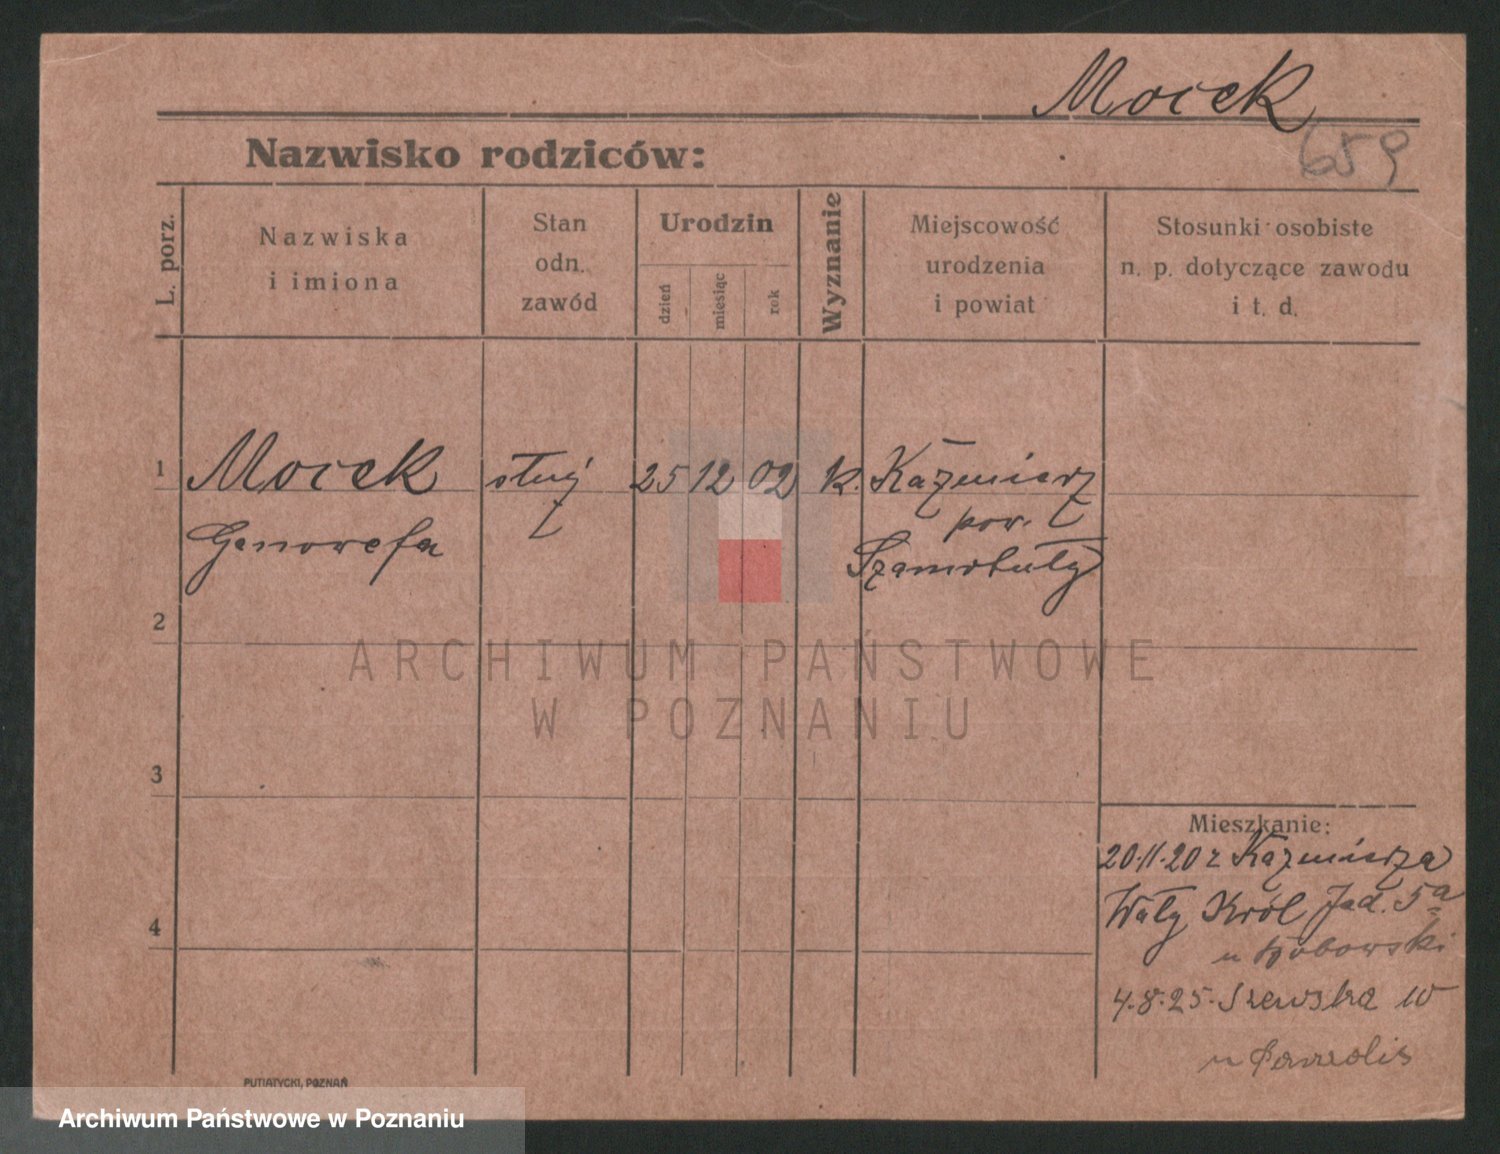 Mocek
659
Nazwisko rodziców:
L. porz.
Nazwiska
i imiona
Stan
odn.
zawód
Urodzin
dzień
miesiąc
rok
Wyznanie
Miejscowość
urodzenia
i powiat
Stosunki osobiste
n. p. dotyczące zawodu
i t. d.
1
Mocek
służ
25 12 02
k.
Kaźmierz
pow.
Genowefa
Szamotuły
2
ARCHIWUM PAŃSTWOWE
W POZNANIU
3
Mieszkanie:
20.11.20 z Kaźmierza
Wały Król Jad. 5a
4
u
4.8.25. Szewska 10
u
PUTIATYCKI, POZNAŃ
Archiwum Państwowe w Poznaniu